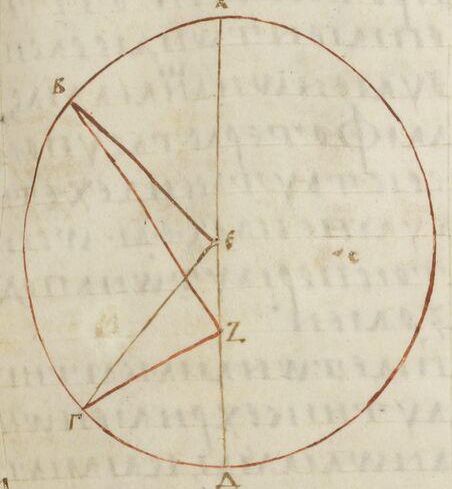 Α
Β
Ε
Ζ
Γ
Δ